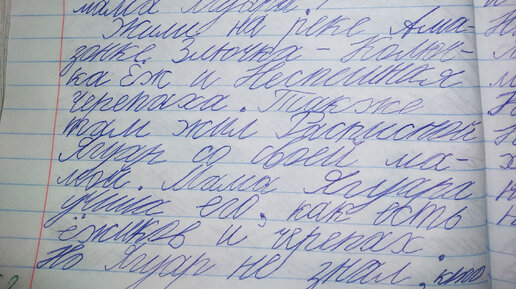 мама Ягуаи?
Жили на реке Ама-
зонке Злючка - Колюч-
ка Ёж и Неспешная
черепаха. Также
там жил Расписной
Ягуар со своей ма-
мой. Мама Ягуара
учила его, как есть
ёжиков и черепах
Но Ягуар не знал, кто